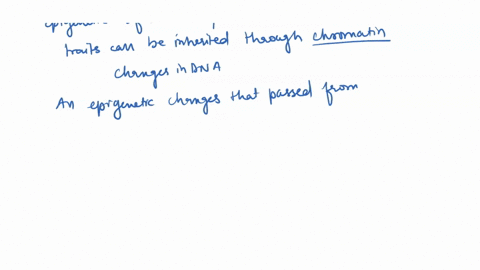 traits can be inherited through chromatin
changes in DNA
An epigenetic changes that passed from